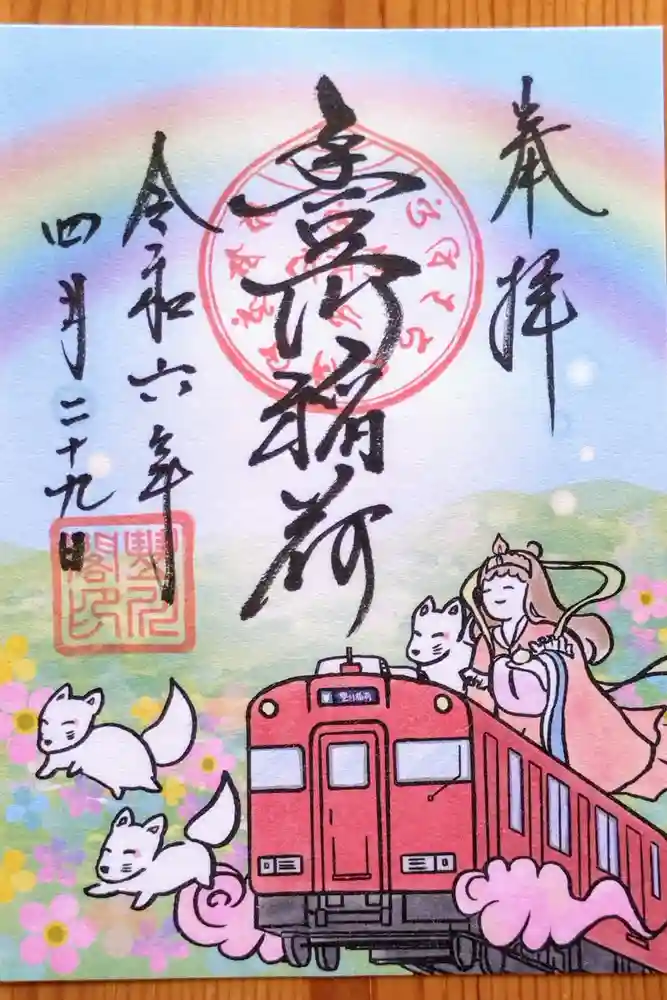 奉拝
豊川稲荷
令和六年
四月二十九日
豐川
閣印
豊川稲荷